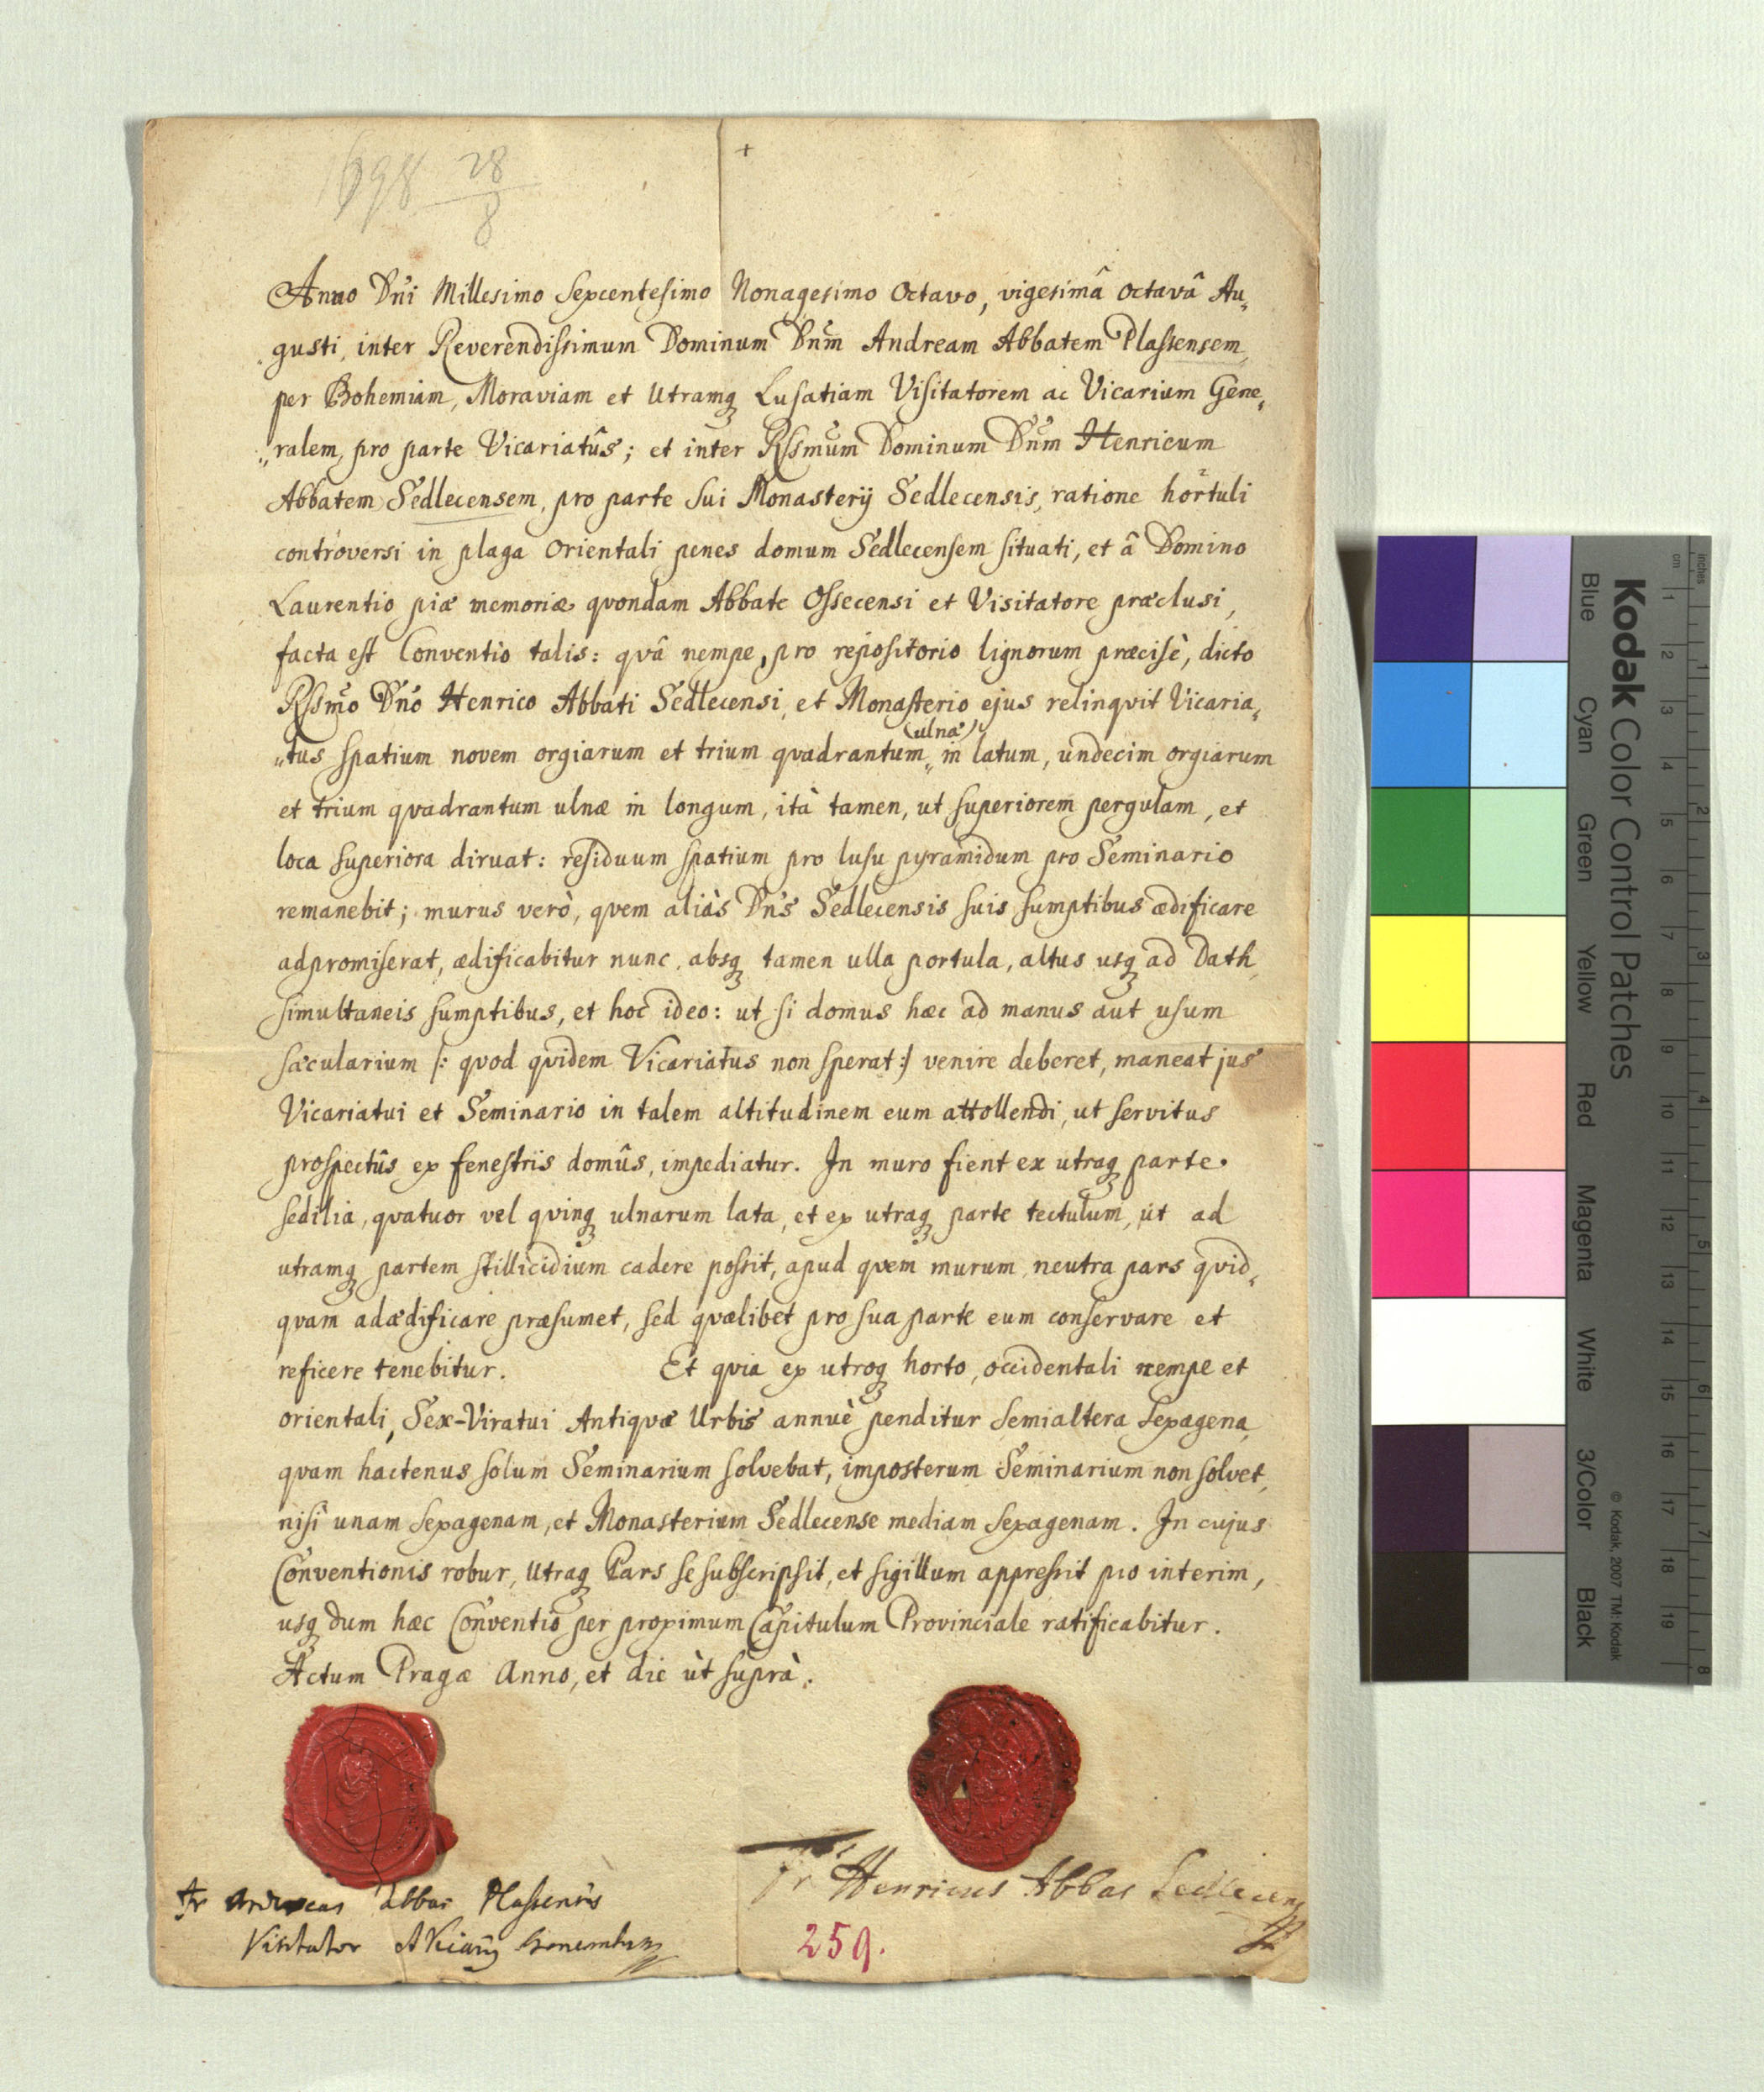 1698 28/8
+
Anno Dn̄i Millesimo Sexcentesimo Nonagesimo Octavo, vigesimâ octavâ Au„
gusti, inter Reverendissimum Dominum Dnm̄ Andream Abbatem Plassensem,
per Bohemiam, Moraviam et Utramq̃ Lusatiam Visitatorem ac Vicarium Gene„
„ralem, pro parte Vicariatûs; et inter Rssmum Dominum Dnm̄ Henricum
Abbatem Sedlecensem, pro parte sui Monasterij Sedlecensis, ratione hortuli
controversi in plaga Orientali penes domum Sedlecensem situati, et â Domino
Laurentio piæ memoriæ quondam Abbate Ossecensi et Visitatore præclusi,
facta est Conventio talis: quâ nempe, pro repositorio lignorum præcisè, dicto
Rssmo Dn̄o Henrico Abbati Sedlecensi, et Monasterio ejus relinquit Vicaria„
(ulnæ)
„tus spatium novem orgiarum et trium quadrantum„ in latum, undecim orgiarum
et trium quadrantum ulnæ in longum, ità tamen, ut superiorem pergulam, et
loca superiora diruat: residuum spatium pro lusu pyramidum pro Seminario
remanebit; murus verò, quem aliàs Dn̄s Sedlecensis suis sumptibus ædificare
adpromiserat, ædificabitur nunc, absq̃ tamen ulla portula, altus usq̃ ad Dath,
simultaneis sumptibus, et hoc ideo: ut si domus hæc ad manus aut usum
sæcularium /: quod quidem Vicariatus non sperat :/ venire deberet, maneat jus
Vicariatui et Seminario in talem altitudinem eum attollendi, ut servitus
prospectûs ex fenestris domûs, impediatur. In muro fient ex utraq̃ parte
sedilia, quatuor vel quinq̃ ulnarum lata, et ex utraq̃ parte tectulum, ut ad
utramq̃ partem stillicidium cadere possit, apud quem murum, neutra pars quid„
quam adædificare præsumet, sed quælibet pro sua parte eum conservare et
reficere tenebitur. Et quia ex utroq̃ horto, occidentali nempe et
orientali, Sex-Viratui Antiquæ Urbis annuè penditur semialtera sexagena,
quam hactenus solum Seminarium solvebat, imposterum Seminarium non solvet,
nisi unam sexagenam, et Monasterium Sedlecense mediam sexagenam. In cujus
Conventionis robur, Utraq̃ Pars se subscripsit, et sigillum appressit pro interim,
usq̃ dum hæc Conventio per proximum Capitulum Provinciale ratificabitur.
Actum Pragæ Anno, et die ùt suprà.
Fr Andreas Abbas Plassensis
Visitator
Fr Henricus Abbas Sedlecens
259.
Kodak Color Control Patches
Blue Cyan Green Yellow Red Magenta White 3/Color Black
© Kodak, 2007 TM: Kodak
inches 1 2 3 4 5 6 7 8
cm 1 2 3 4 5 6 7 8 9 10 11 12 13 14 15 16 17 18 19